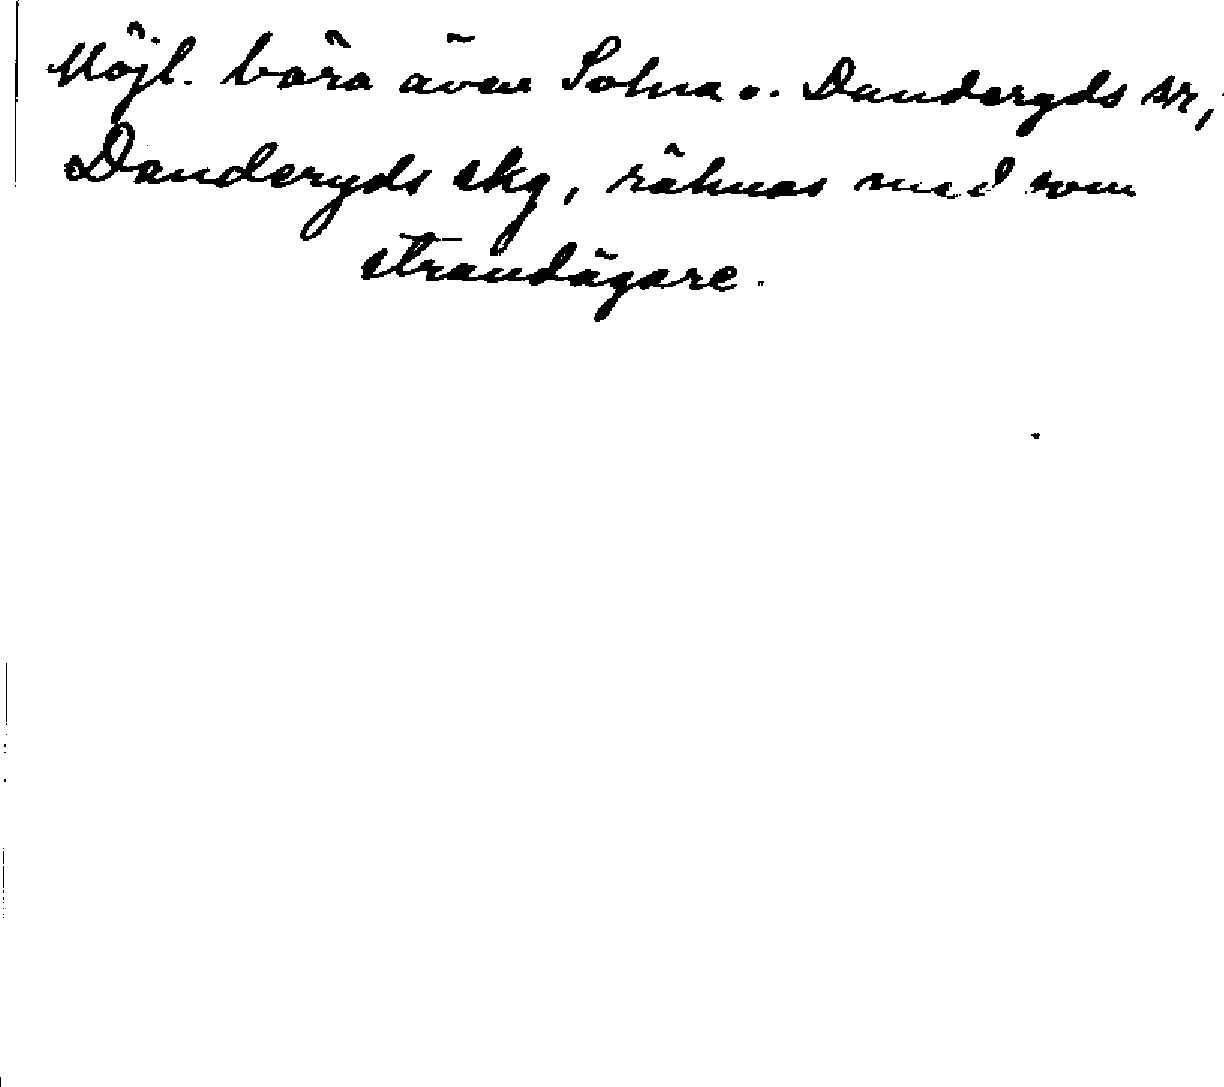 Möjl. böra även Solna o. Danderyds sr,
Danderyds skg, räknas med som
strandägare.